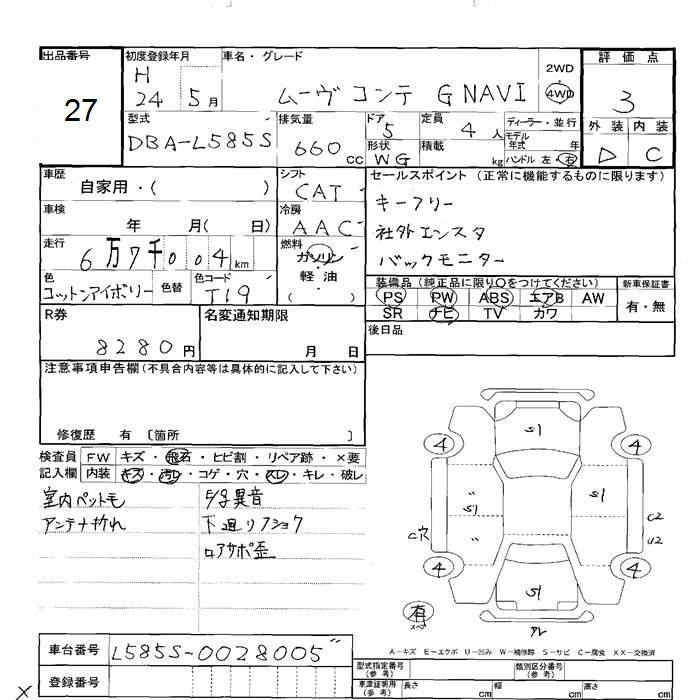 出品番号 27
初度登録年月 H 24 5月
車名・グレード ムーヴ コンテ G NAVI
2WD 4WD
評価点 3
外装 D 内装 C
型式 DBA-L585S
排気量 660 cc
ドア 5 形状 WG
定員 4 人 積載 kg
ディーラー・並行
モデル年式 年
ハンドル 左・右
車歴 自家用・( )
シフト CAT
セールスポイント (正常に機能するものに限ります)
キーフリー
社外エンスタ
バックモニター
車検 年 月( 日)
冷房 AAC
走行 6万7千004 km
燃料 ガソリン・軽油 ( )
色 コットンアイボリー 色替 色コード T19
装備品 (純正品に限り○をつけてください) 新車保証書
PS PW ABS エアB AW 有・無
SR ナビ TV カワ
R券 8280 円
名変通知期限 月 日
後日品
注意事項申告欄 (不具合内容等は具体的に記入して下さい)
修復歴 有 〔箇所 〕
検査員 FW キズ・飛石・ヒビ割・リペア跡・×要
記入欄 内装 キズ・汚レ・コゲ・穴・スレ・キレ・破レ
室内ペット毛
アンテナやれ
異音
下廻リフショク
ロアサポ歪
S1
4 4
S1 S1
C穴 C2
U2
4 4
S1
有
スペア
A-キズ E-エクボ U-凹み W-補修跡 S-サビ C-腐食 XX-交換済
車台番号 L585S-0028005
登録番号
型式指定番号 (参考) 類別区分番号 (参考)
車庫証明用 (参考) 長さ cm 幅 cm 高さ cm
×